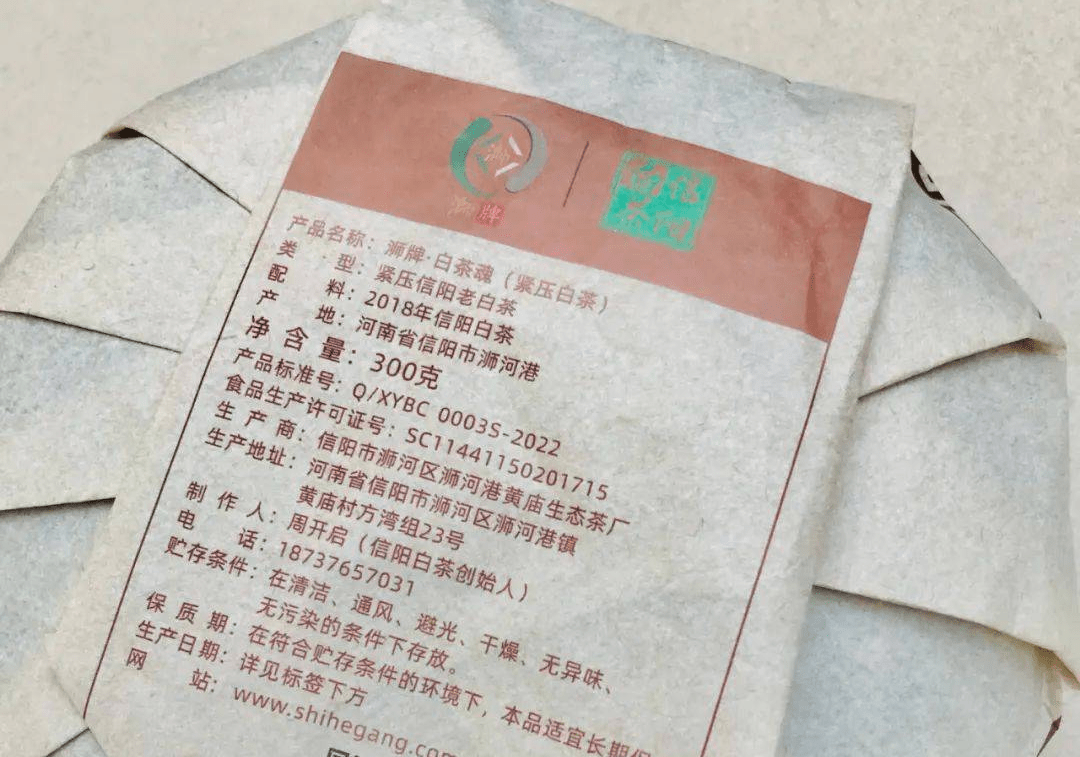 浉牌
信阳
白茶
产品名称：浉牌·白茶魂（紧压白茶）
类 型：紧压信阳老白茶
配 料：2018年信阳白茶
产 地：河南省信阳市浉河港
净 含 量：300克
产品标准号：Q/XYBC 0003S-2022
食品生产许可证号：SC11441150201715
生 产 商：信阳市浉河区浉河港黄庙生态茶厂
生产地址：河南省信阳市浉河区浉河港镇
黄庙村方湾组23号
制 作 人：周开启（信阳白茶创始人）
电 话：18737657031
贮存条件：在清洁、通风、避光、干燥、无异味、
无污染的条件下存放。
保 质 期：在符合贮存条件的环境下，本品适宜长期保
生产日期：详见标签下方
网 站：www.shihegang.com